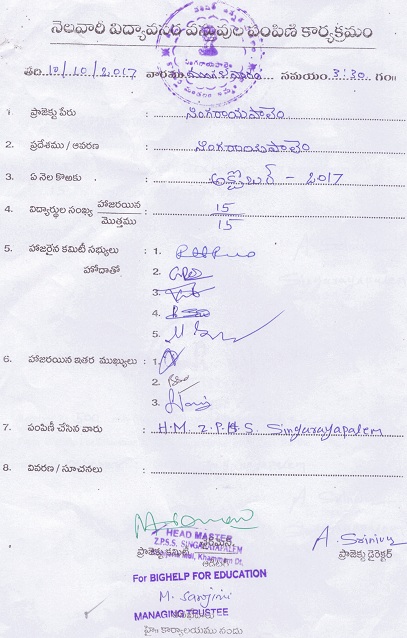 నెలవారీ విద్యావసర వస్తువుల పంపిణి కార్యక్రమం
తేది 17/10/2017 వారము సమయం 3:30 గం॥
1. ప్రాజెక్టు పేరు : సింగరాయపాలెం
2. ప్రదేశము / ఆవరణ : సింగరాయపాలెం
3. ఏ నెల కొఱకు : అక్టోబర్ - 2017
4. విద్యార్థుల సంఖ్య హాజరయిన / మొత్తము : 15 / 15
5. హాజరైన కమిటీ సభ్యులు : 1.
హోదాతో 2.
3.
4.
5.
6. హాజరయిన ఇతర ముఖ్యులు : 1.
2.
3.
7. పంపిణీ చేసిన వారు : H.M. Z.P.H.S. Singarayapalem
8. వివరణ / సూచనలు :
HEAD MASTER
Z.P.S.S. SINGARAYAPALEM
Khammam Dt.
ప్రాజెక్టు కమిటీ
A. Srinivas
ప్రాజెక్టు డైరెక్టర్
For BIGHELP FOR EDUCATION
M. Sarojini
MANAGING TRUSTEE
హై॥ కార్యాలయము నందు